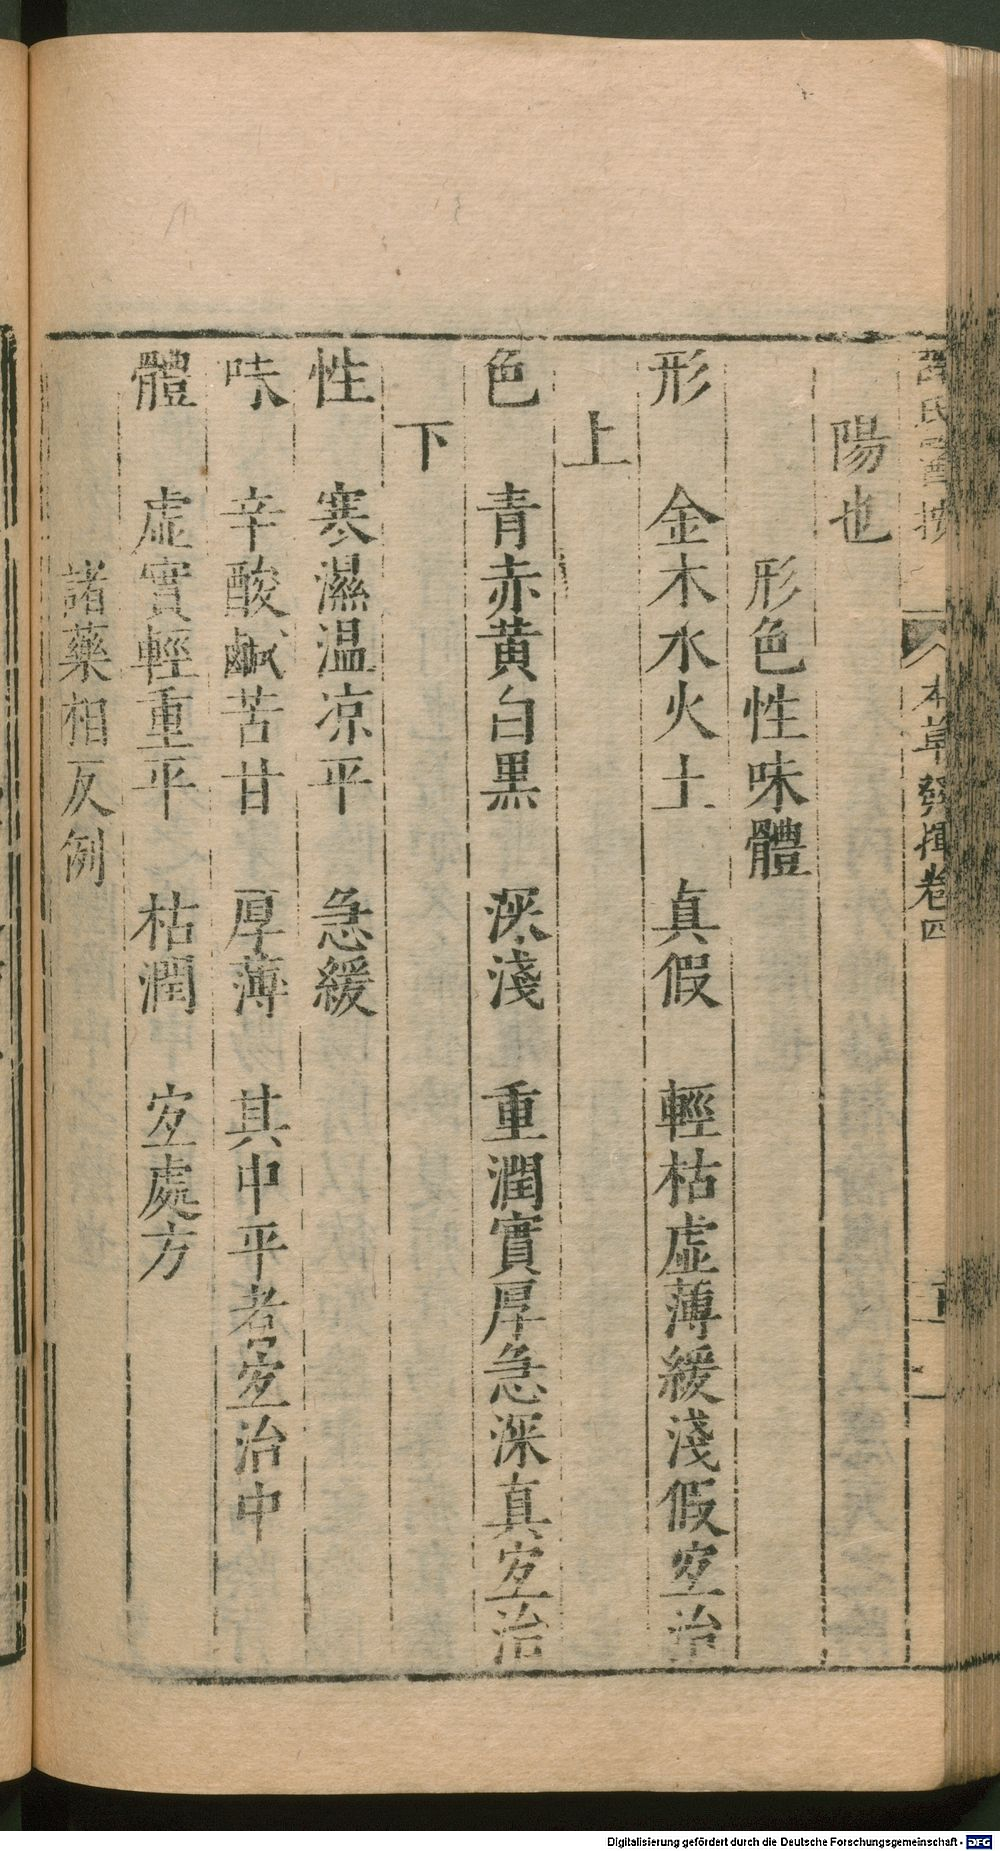 薛氏醫按
本草發揮卷四
陽也
形色性味體
形 金木水火土 真假 輕枯虛薄緩淺假宐治
上
色 青赤黃白黑 深淺 重潤實厚急深真宐治
下
性 寒濕温凉平 急緩
味 辛酸鹹苦甘 厚薄 其中平者宐治中
體 虛實輕重平 枯潤 宐處方
諸藥相反例
Digitalisierung gefördert durch die Deutsche Forschungsgemeinschaft - DFG